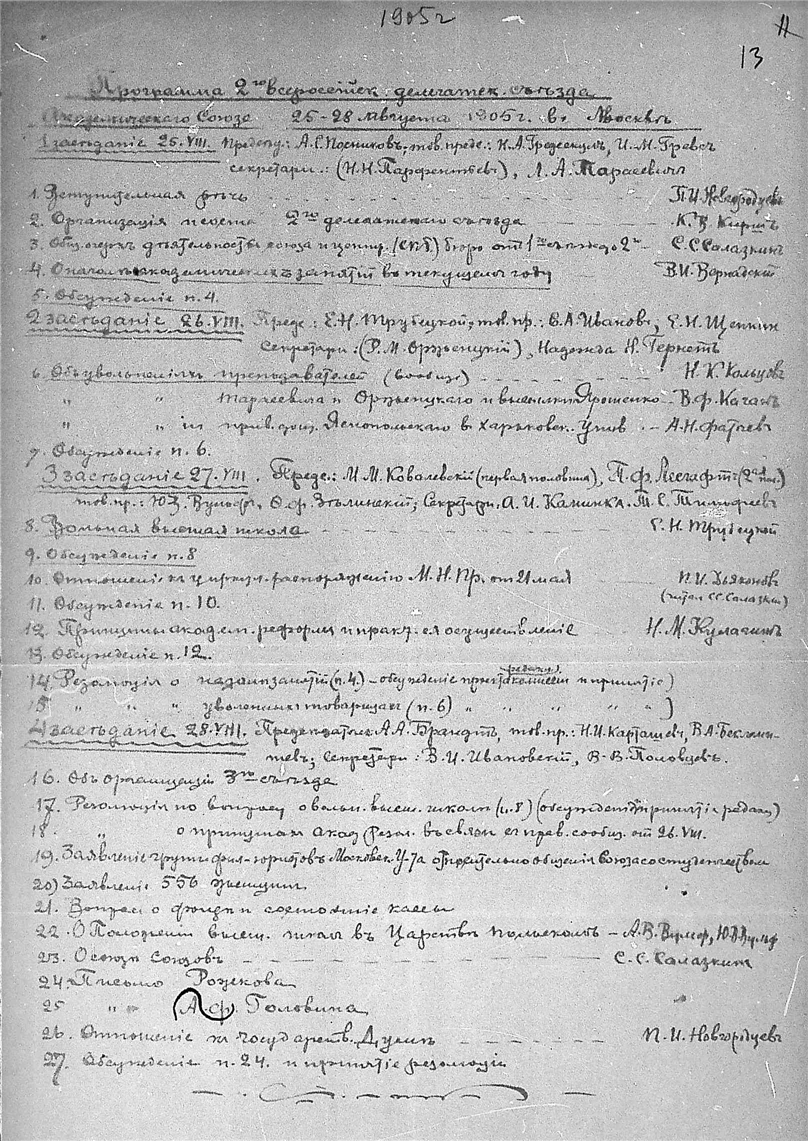 1905 г
11
13
Программа 2го всероссійск. делегатск. съѣзда
Академическаго Союза 25-28 Августа 1905 г. въ Москвѣ
1 засѣданіе 25.VIII. Предсѣд.: А.С. Посниковъ, тов. предс.: Н.А. Гредескулъ, И.М. Гревсъ
секретари: (Н.Н. Парфентьевъ), Л.А. Тарасевичъ
1. Вступительная рѣчь П.И. Новгородцевъ
2. Организація 2го делегатскаго съѣзда К.
3. Общ. очеркъ дѣятельности союза и центр. (СПб) бюро отъ 1го съѣзда до 2го С.С. Салазкинъ
4. О началѣ академическихъ занятій въ текущемъ году В.И. Вернадскій
5. Обсужденіе п. 4.
2 засѣданіе 26.VIII. Предс.: Е.Н. Трубецкой, тов. пр.: Е.А. Ивановъ, Е.Н. Щепкин
Секретари: (Р.М. Орженцкій), Надежда Н. Гернетъ
6. Объ увольненіяхъ преподавателей (вообще) Н.К. Кольцовъ
" " Тарасевича и Орженцкаго и высылки Ярошенко - В.Ф. Каганъ
" " прив. доц. Яснопольскаго в Харьковск. Унив. - А.Н. Фатѣевъ
7. Обсужденіе п. 6.
3 засѣданіе 27.VIII. Предс.: М.М. Ковалевскій (первая половина), П.Ф. Лесгафтъ (2ая пол.)
тов. пр.: Ю.В. Вульфъ, Ѳ.Ф. Зѣлинскій; Секретари: А.И. Каминка. Т.Е. Тимофеевъ
8. Вольная высшая школа Е.Н. Трубецкой
9. Обсужденіе п. 8
10. Отношеніе къ циркул. распоряженію М.Н.Пр. от 21 мая П.И. Дьяконовъ
(читал С.С. Салазкин)
11. Обсужденіе п. 10.
12. Принципы академ. реформы и практ. ея осуществленіе Н.М. Кулагинъ
13. Обсужденіе п. 12.
14. Резолюція о началѣ занятій (п. 4) - обсужденіе проекта комиссіи и принятіе)
редакц.
15 " " " уволенныхъ товарищах (п. 6) " " " " )
4 засѣданіе 28.VIII. Предсѣдатель А.А. Брандтъ, тов. пр.: Н.И. Карташев, В.А. Беклемишевъ; Секретари: В.И. Ивановскій, В.В. Половцевъ.
16. Объ организаціи 3го съѣзда
17. Резолюція по вопросу о вольн. высш. школѣ (п. 8) (обсужденіе и принятіе редакц)
18. " о принципах акад. реф. въ связи съ прав. сообщ. от 26.VIII.
19. Заявленіе группы фил.-юристовъ Московск. У-та относительно общенія Союза со студенчеством
20) Заявленіе 556 женщин
21. Вопрос о фондѣ и состояніе кассы
22. О Положеніи высш. школ въ Царствѣ Польскомъ - А.В. Вульф, Ю.В. Вульф
23. О союзѣ Союзовъ С.С. Салазкин
24. Письмо Рожкова
25 " " А.Ф. Головина
26. Отношеніе къ государств. Думѣ П.И. Новгородцевъ
27. Обсужденіе п. 24. и принятіе резолюціи